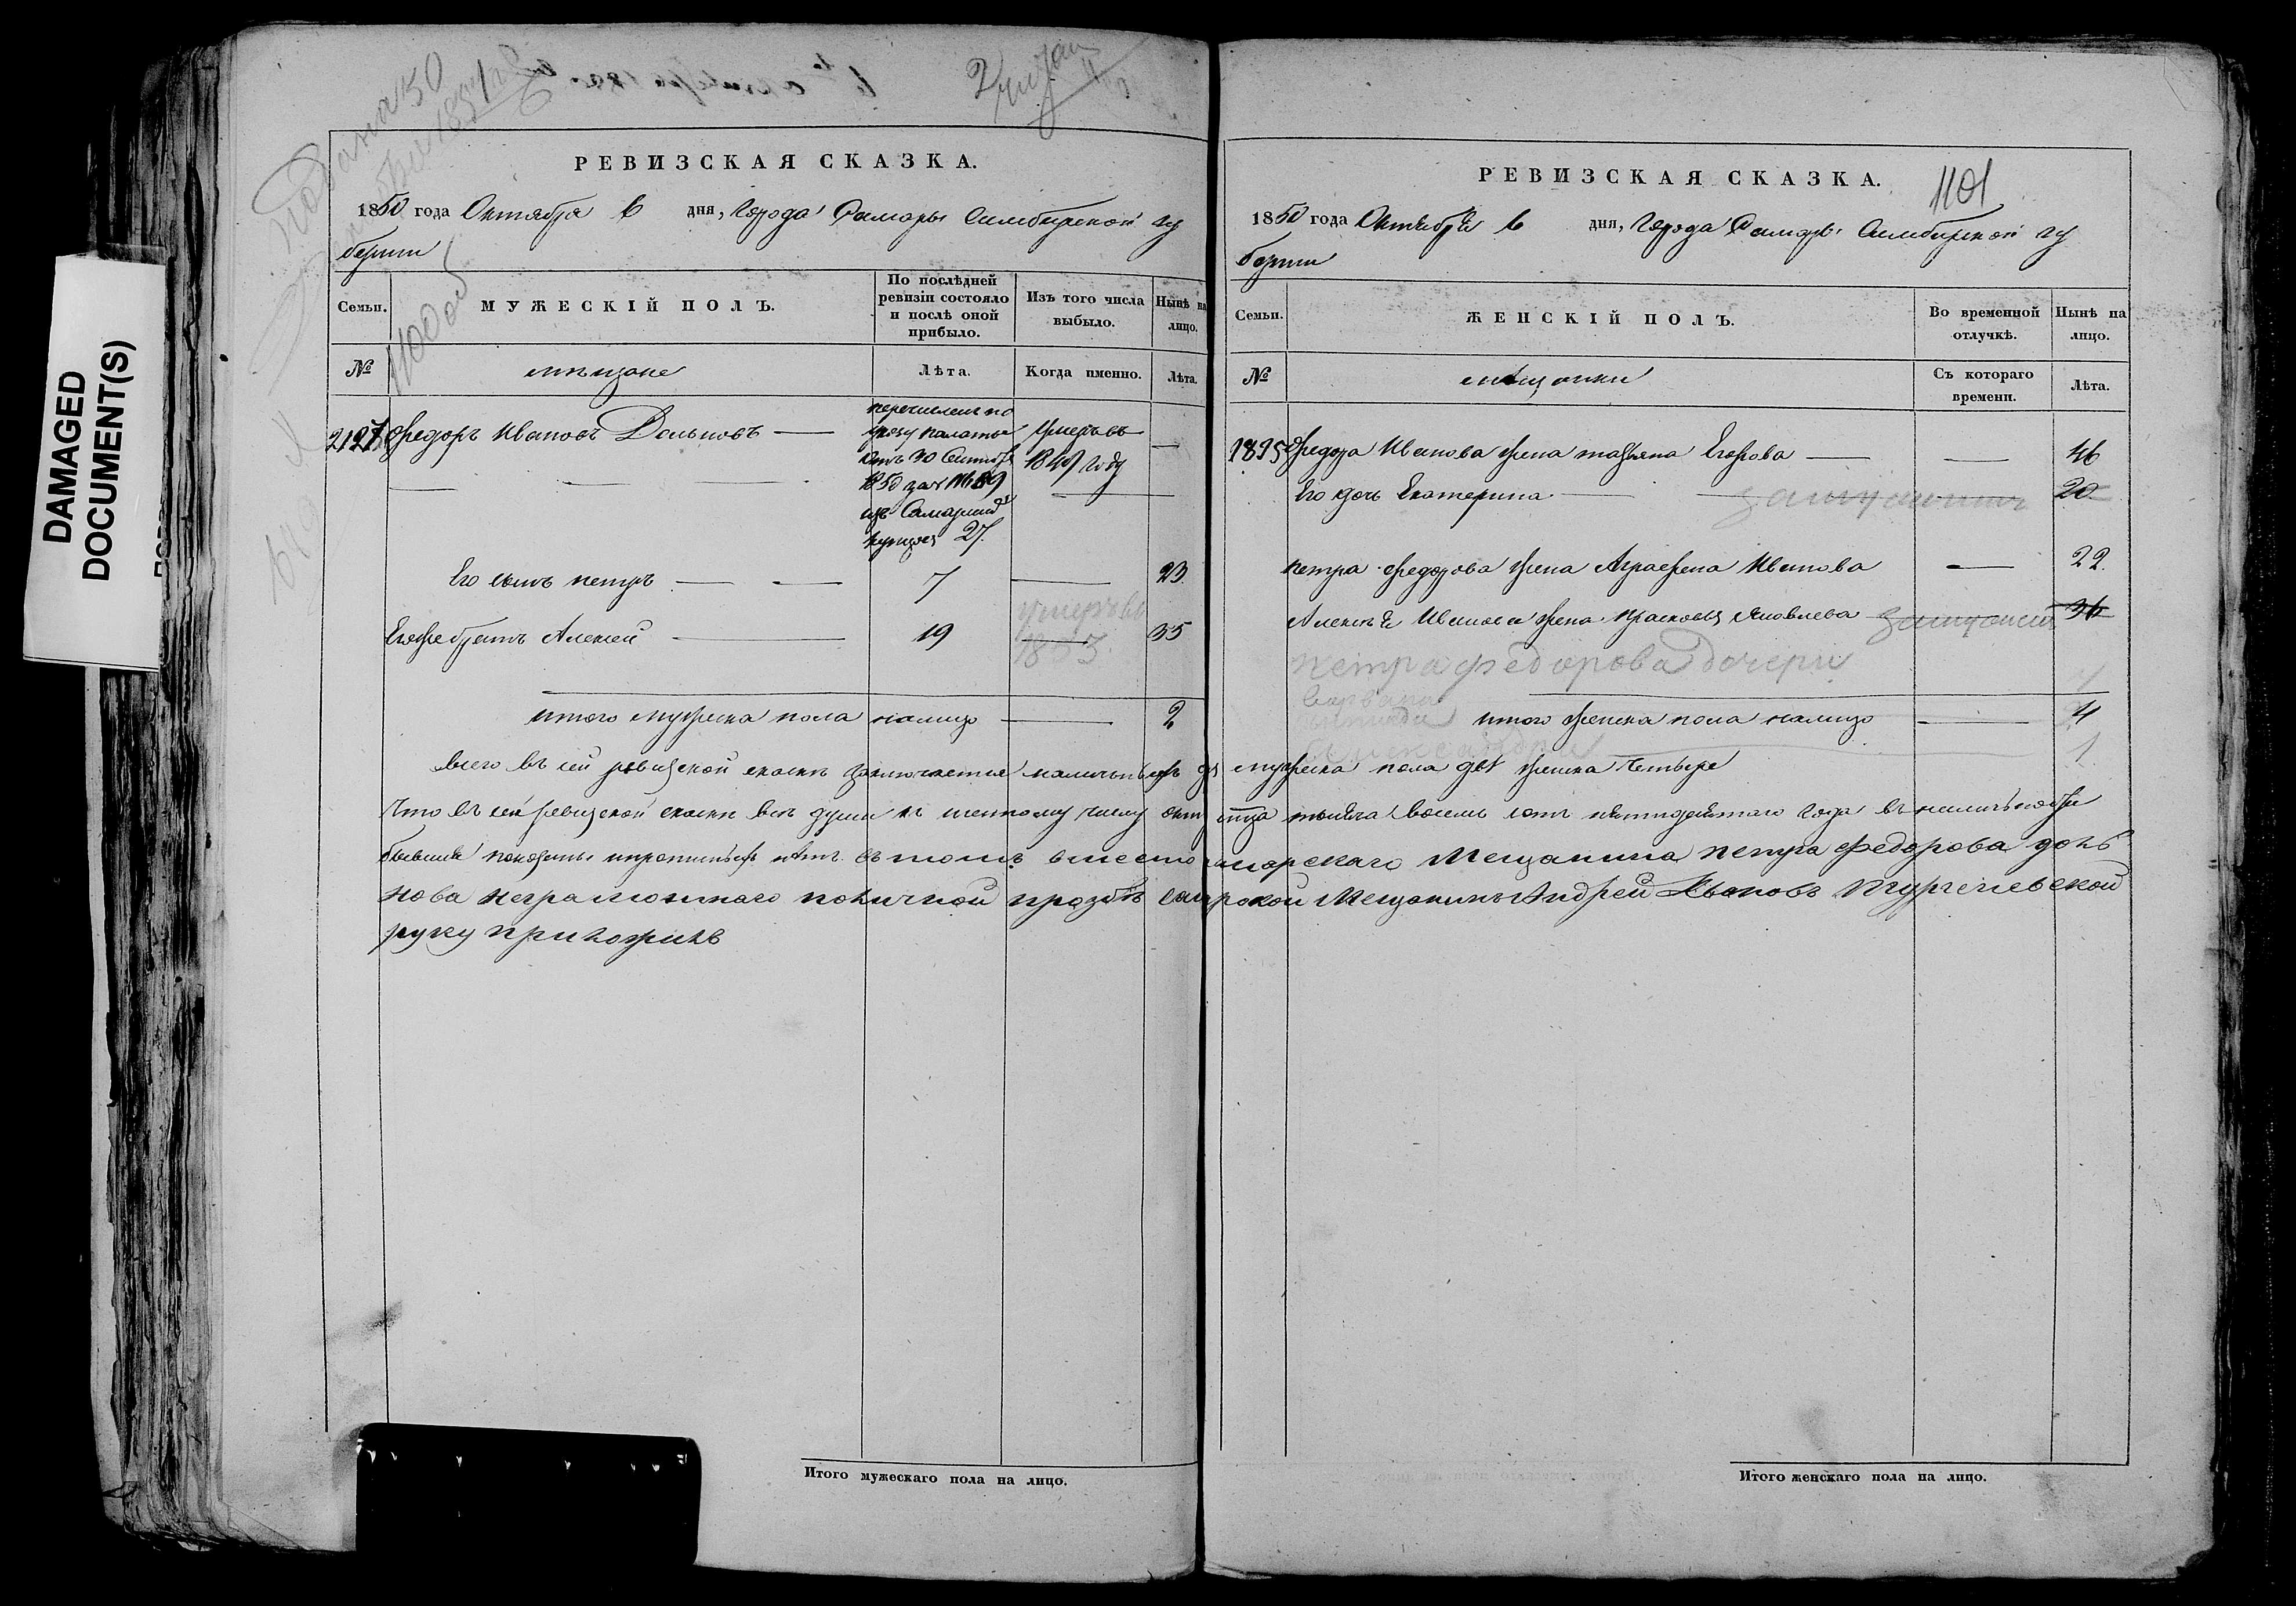 DAMAGED
DOCUMENT(S)
РЕВИЗСКАЯ СКАЗКА.
1850 года Октября 6 дня, Города Самары Симбирской гу
бернии
Семьи.
МУЖЕСКІЙ ПОЛЪ.
По послѣдней
ревизіи состояло
и послѣ оной
прибыло.
Изъ того числа
выбыло.
Нынѣ на
лицо.
№
мѣщане
Лѣта.
Когда именно.
Лѣта.
перечислен по
указу палаты
отъ 30 Сентябр
1850 за №
изъ Самарий
купцов 27.
Федоръ Ивановъ Дольновъ
Умеръ въ
1849 году
Его сынъ петръ 7 23
Его же братъ Алексей 19 умеръ въ 1853 35
итого мужеска пола налицо 2
РЕВИЗСКАЯ СКАЗКА.
1101
1850 года Октября 6 дня, Города Самары Симбирской гу
бернии
Семьи.
ЖЕНСКІЙ ПОЛЪ.
Во временной
отлучкѣ.
Нынѣ на
лицо.
№
мѣщанки
Съ котораго
времени.
Лѣта.
1895 Федора Иванова жена татьяна Егорова 46
Его дочь Екатерина замужем 20
петра Федорова жена Аграфена Иванова 22
Алексѣя Иванова жена прасковья Яковлева замужем 36
петра федорова дочери
итого женска пола налицо 4
1
Всего въ сей ревизской сказкѣ заключается наличныхъ душ мужеска пола двѣ женска Четыре
Что въ сей ревизской сказки все души къ шестому числу октября тысяча восемь сотъ пятидесятаго года въ наличности
бывшия показаны и прописныхъ нѣтъ въ томъ вместо самарскаго Мещанина петра Федорова доль
нова неграмотнаго по личной прозбѣ самрской Мещанинъ Андрей Ивановъ Тургеневской
руку приложилъ
Итого мужескаго пола на лицо.
Итого женскаго пола на лицо.